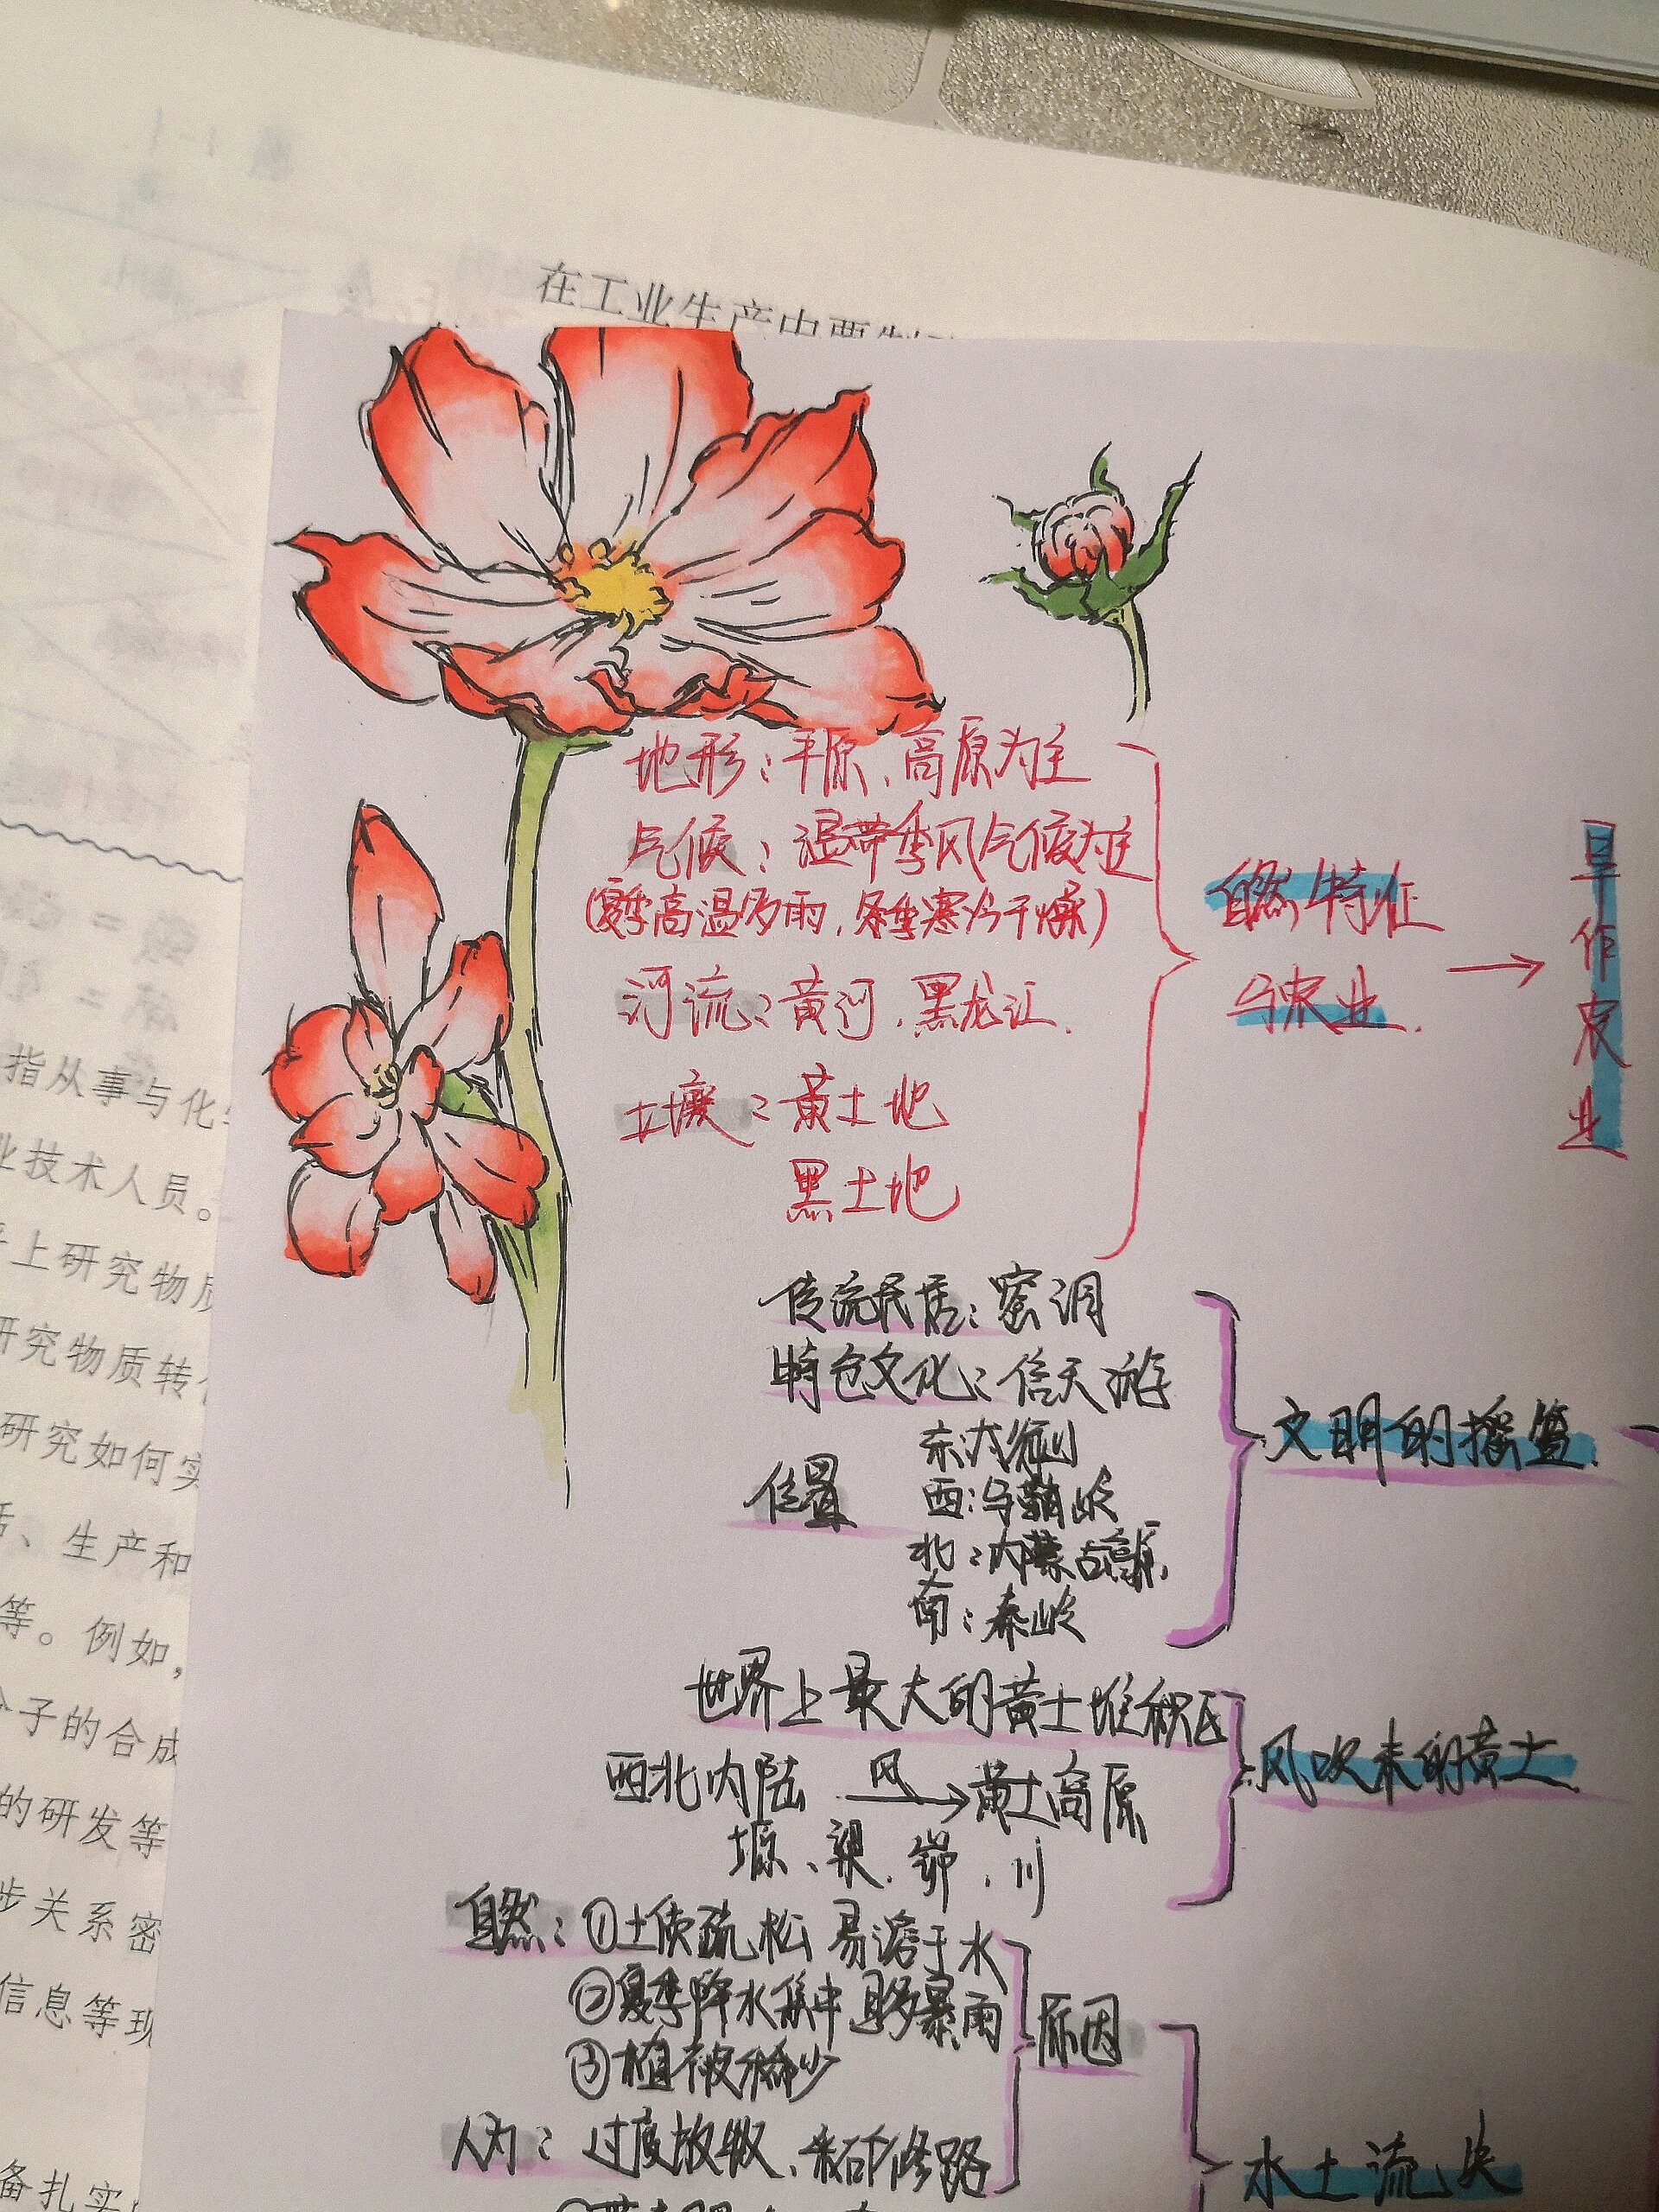 在工业生产中要制
地形：平原、高原为主
气候：温带季风气候为主
(夏季高温多雨，冬季寒冷干燥)
河流：黄河、黑龙江.
土壤：黄土地
黑土地
自然特征
与农业.
→
旱作农业
传统民居：窑洞
特色文化：信天游
位置
东：太行山
西：乌鞘岭
北：内蒙古高原
南：秦岭
文明的摇篮
世界上最大的黄土堆积区
西北内陆 风→ 黄土高原
塬、梁、峁、川
风吹来的黄土
自然：①土质疏松 易溶于水
②夏季降水集中 且多暴雨
③植被稀少
人为：过度放牧、采矿修路
原因
水土流失
指从事与化
业技术人员。
上研究物质
研究物质转
研究如何实
、生产和
等。例如，
子的合成
的研发等
步关系密
信息等现
备扎实